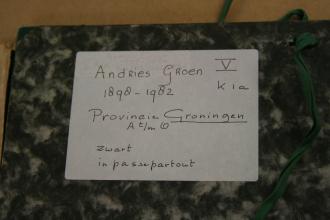 Andries Groen V
1898-1982 K 1a
Provincie Groningen
A t/m O
zwart
in passepartout